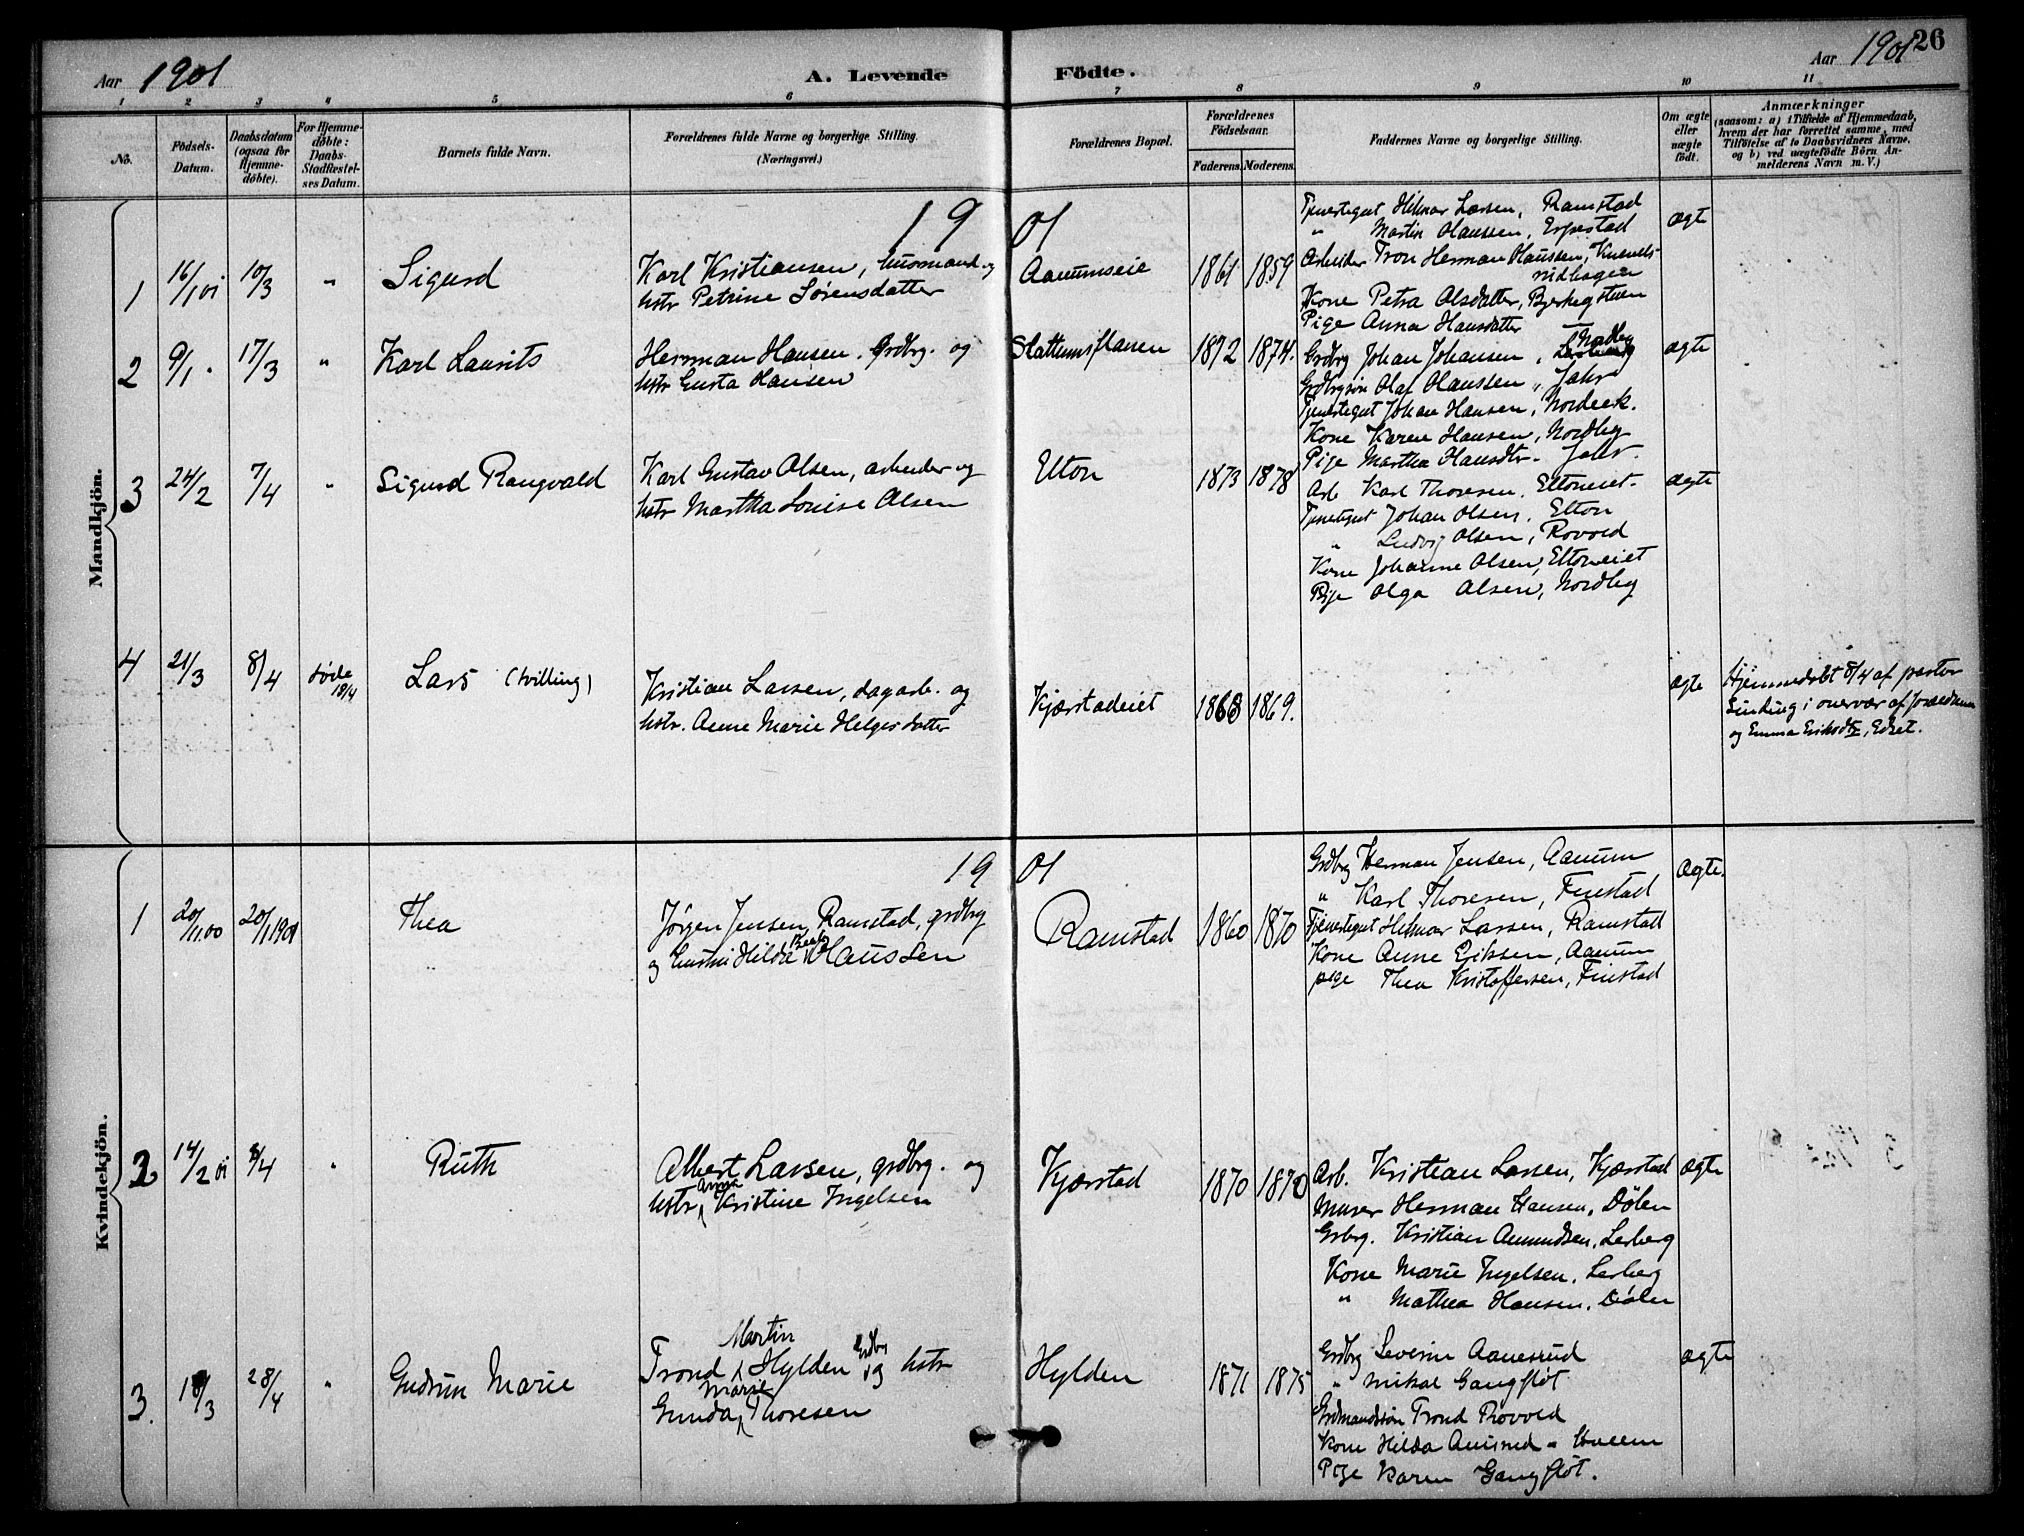 26
Aar 1901
A. Levende Födte.
Aar 1901
1 2 3 4 5 6 7 8 9 10 11
No.
Födsels-
Datum.
Daabsdatum
(ogsaa for
Hjemme-
döbte).
For Hjemme-
döbte:
Daabs-
Stadfæstel-
ses Datum.
Barnets fulde Navn.
Forældrenes fulde Navne og borgerlige Stilling.
(Næringsvei.)
Forældrenes Bopæl.
Forældrenes
Födselsaar.
Faderens. Moderens.
Faddernes Navne og borgerlige Stilling.
Om ægte
eller
uægte
födt.
Anmærkninger
(saasom: a) i Tilfælde af Hjemmedaab,
hvem der har forrettet samme, med
Tilföielse af to Daabsvidners Navne,
og b) ved uægtefödte Börn An-
melderens Navn m. V.)
Mandkjön.
1901
1 16/1 01 10/3 " Sigurd
Karl Kristiansen, husmand og
hstr Petrine Sørensdatter
Aanumseie 1861 1859
Tjenestegut Hilmar Larsen, Ramstad
" Martin Hanssen, Erpestad
Arbeider Tron Herman Hanssen,
Kone Petra Olsdatter,
Pige Anna Hansdatter
ægte
2 9/1 17/3 " Karl Laurits
Herman Hansen, grdbrg. og
hstr Gusta Hansen
Slattumsflaten 1872 1874.
Grdbrg Johan Johansen,
Grdbrgsøn Olaf Hanssen, Jahr
Tjenestegut Johan Hansen, Nordeek.
Kone Karen Hansen, Nordby
Pige Martha Hansdtr. Jahr.
ægte
3 24/2 7/4 " Sigurd Rangvald
Karl Gustav Olsen, arbeider og
hstr Martha Louise Olsen
Elton 1873 1878
Arb Karl Thoresen, Eltoneiet.
Tjenestegut Johan Olsen, Elton
" Ludvig Olsen, Rovold
Kone Johanne Olsen, Eltoneiet
Pige Olga Olsen, Nordby
ægte
4 21/3 8/4 døde 18/4 Lars (tvilling)
Kristian Larsen, dagarb. og
hstr. Anne Marie Helgesdatter
Kjærstadeiet 1868 1869.
ægte
Hjemmedøbt 8/4 af pastor
Sinding i overvær af forældrene
og Emma Eriksdtr,
Kvindekjön.
1901
1 20/11.00 20/1 1901 Thea
Jørgen Jensen Ramstad, grdbrg
og hustru Hilda Beate Hanssen
Ramstad 1860 1870
Grdbrg Herman Jensen, Aanum
" Karl Thoresen, Finstad
Tjenestegut Hilmar Larsen, Ramstad
Kone Anne Eriksen, Aanum
pige Thea Kristoffersen, Finstad
Ægte.
2 14/2 01 8/4 " Ruth
Albert Larsen, grdbrg. og
hstr Anna Kristine Ingelsen
Kjærstad 1870 1870
Arb. Kristian Larsen, Kjærstad
Murer Herman Hansen, Dølen
Grbrg. Kristian Amundsen, Lerberg
Kone Marie Ingelsen, Lerberg
" Mathea Hansen, Dølen
ægte
3. 18/3 28/4 " Gudrun Marie
Trond Martin Hylden Grdbrg og hstr
Gunda Marie Thoresen
Hylden 1871 1875
Grdbrg Severin Aanesrud
" Mikal Gangfløt
Grdmandssøn Trond Rovold
Kone Hilda
Pige Karen Gangfløt.
ægte